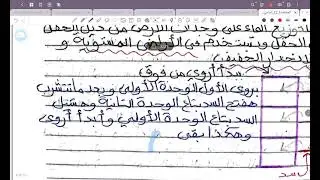 لتوزيع الماء على وحدات الأرض من خلال الحقل
الحقل ويستخدم في الأراضي المستوية و
الانحدار الخفيف
بيدأ أروى من فوق
يروى الأول الوحدة الأولى وبعد ما تتشرب
هفتح السد بتاع الوحدة التانية وهشيل
السد بتاع الوحدة الأولى وأبدأ أروى
وهكذا بقى
سد